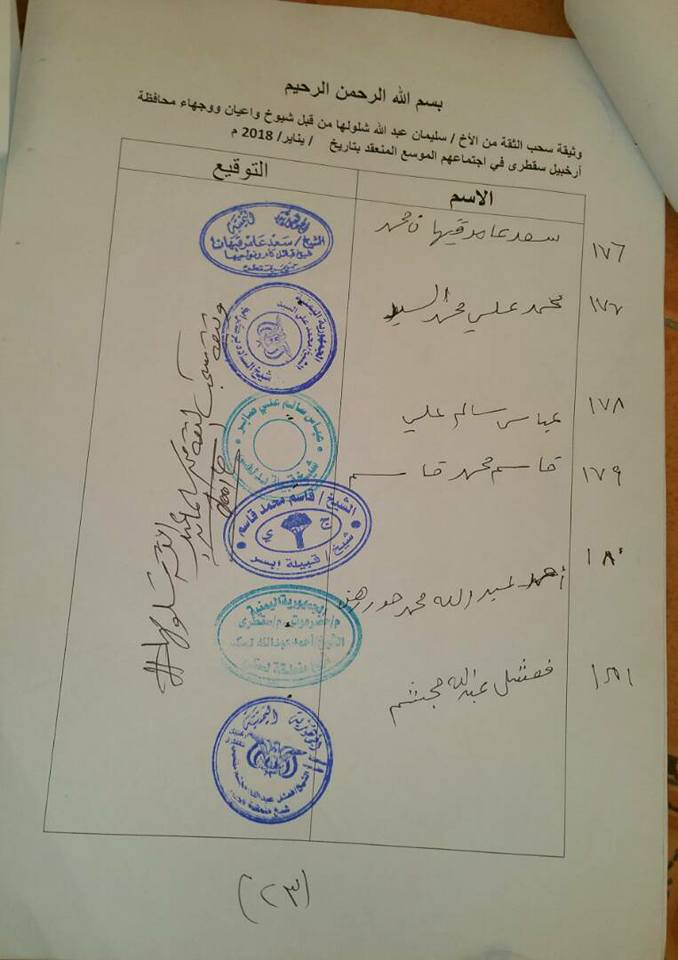 بسم الله الرحمن الرحيم
وثيقة سحب الثقة من الأخ / سليمان عبد الله شلولها من قبل شيوخ واعيان ووجهاء محافظة
أرخبيل سقطرى في اجتماعهم الموسع المنعقد بتاريخ / يناير/ 2018 م
الاسم التوقيع
١٧٦ سعد عامر قيهان محمد
الجمهورية اليمنية
الشيخ / سعد عامر قيهان
١٧٧ محمد علي محمد السيد
الجمهورية اليمنية
١٧٨ عباس سالم علي
عباس سالم علي صابر
شيخ قبيلة
١٧٩ قاسم محمد قاسم
الشيخ / قاسم محمد قاسم
ج ي
شيخ / قبيلة ابسر
١٨٠ أحمد عبد الله محمد
الجمهورية اليمنية
م/حضرموت م/سقطرى
الشيخ / احمد عبدالله
منطقة
١٨١ فضل عبد الله مجشم
الجمهورية اليمنية
وثيقة سحب الثقة من سليمان عبد الله شلولها
(٢٣)